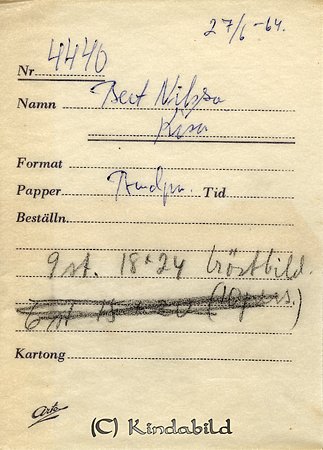 27/6-64.
Nr 4446
Namn Bert Nilsson
Kisa
Format
Papper Brudpar. Tid
Beställn.
9 st. 18 x 24 bröstbild.
6 st
Kartong
Ark
(C) Kindabild